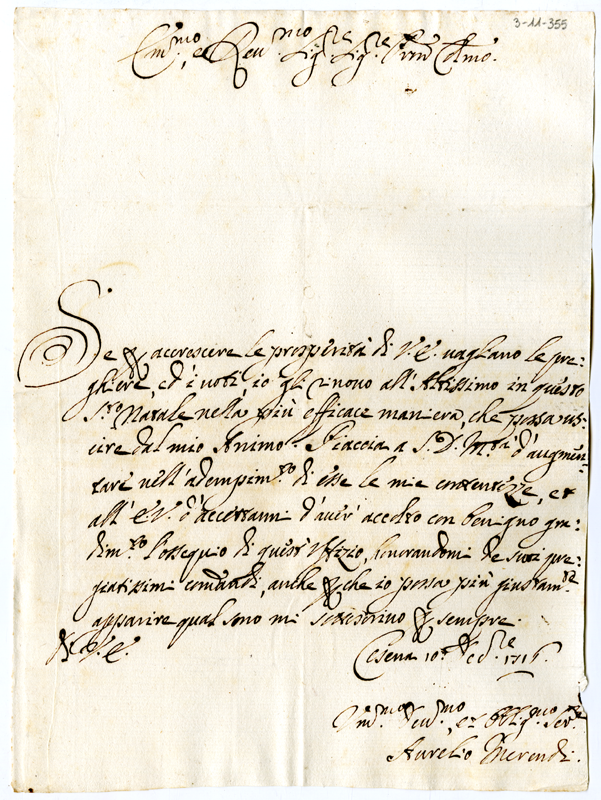 3-11-355
Em.mo, e Reu.mo Sig.re Sig.re P̃rōn Col.mo
Se p accrescere le prosperità di V.E. uagliano le pre:
ghiere, ed i uoti, io gli rinouo all'Altissimo in questo
S.to Natale nella più efficace maniera, che possa us:
cire dal mio Animo. Piaccia a S.D.M.tà d'augmen:
tare nell'adempim.to di esse le mie contentezze, et
all'E.V. d'accertarmi d'auer accolto con benigno gra:
dim.to l'ossequio di quest'Uffizio, honorandomi de suoi pre:
giatissimi comandi, anche p che io possa più giustam.te
apparire qual sono mi sottoscriuo p sempre.
Di V.E.
Cesena 10
Um.mo Deu.mo, et Obblig.mo Ser.re
Aurelio Merendi.